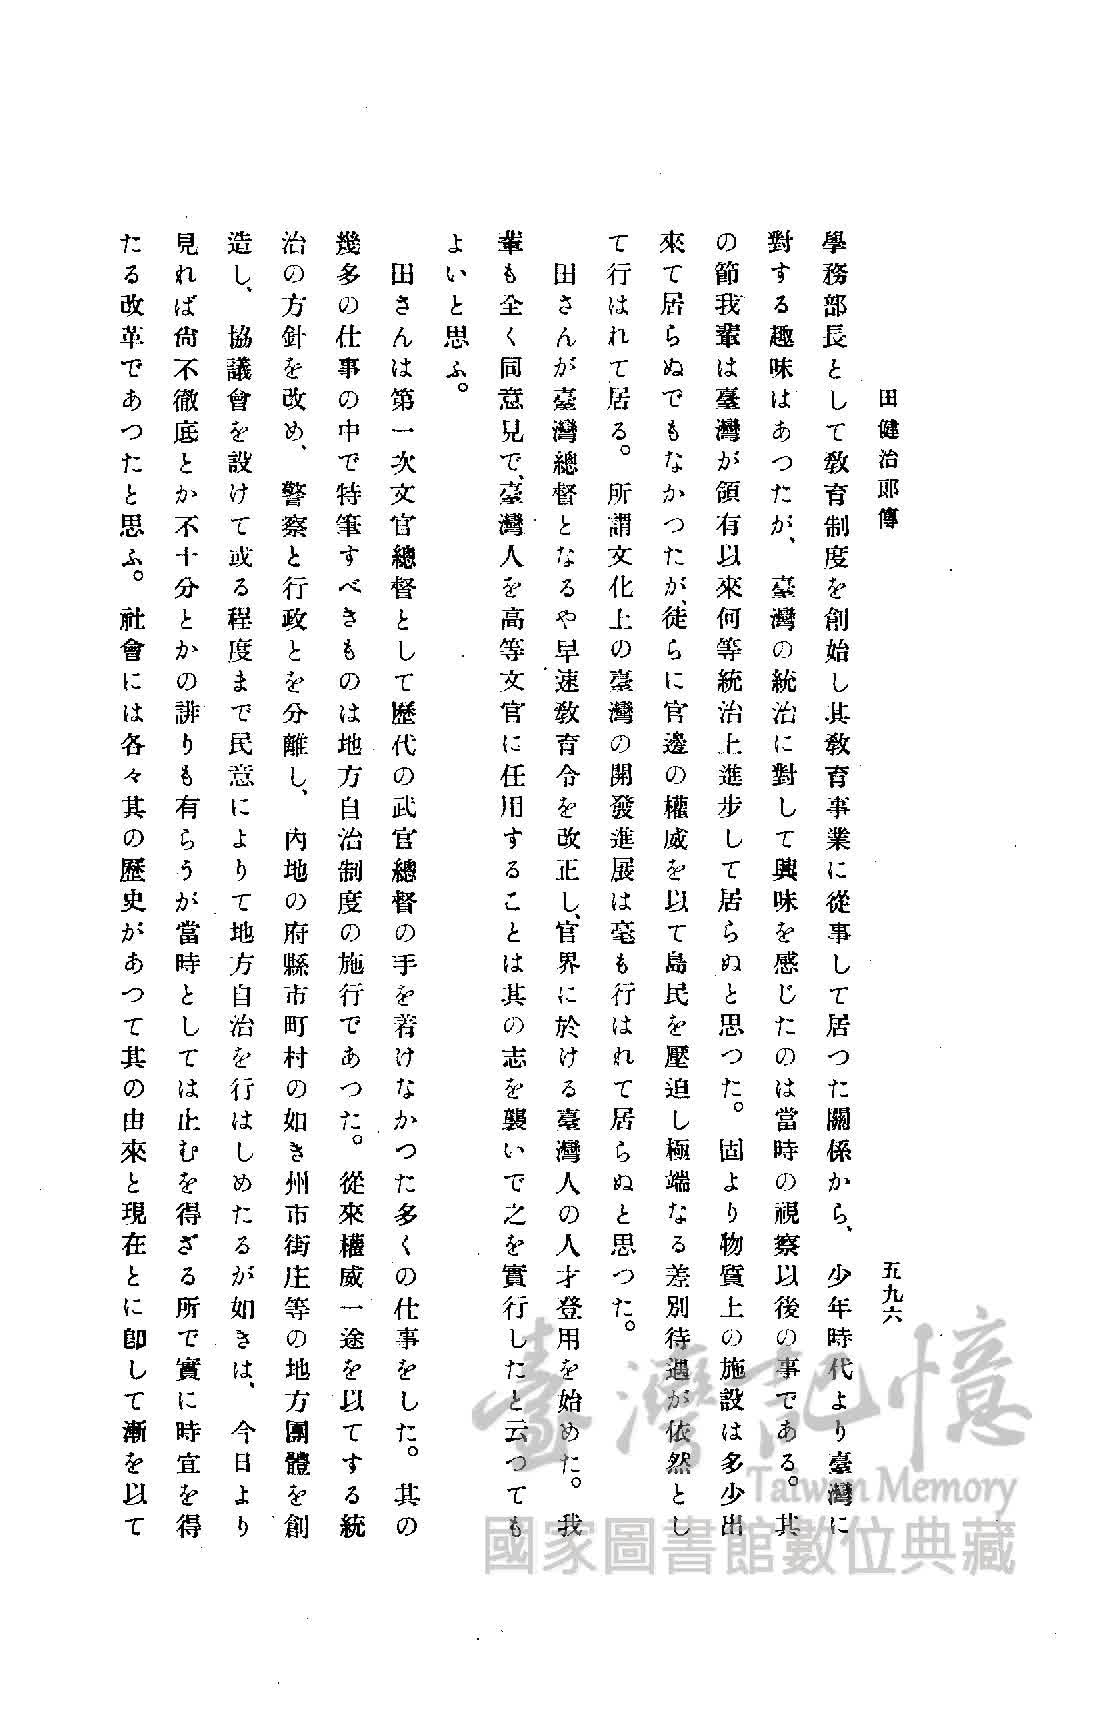 田健治郎傳
五九六
學務部長として教育制度を創始し其教育事業に從事して居つた關係から、少年時代より臺灣に
對する趣味はあつたが、臺灣の統治に對して興味を感じたのは當時の視察以後の事である。其
の節我輩は臺灣が領有以來何等統治上進步して居らぬと思つた。固より物質上の施設は多少出
來て居らぬでもなかつたが、徒らに官邊の權威を以て島民を壓迫し極端なる差別待遇が依然とし
て行はれて居る。所謂文化上の臺灣の開發進展は毫も行はれて居らぬと思つた。
田さんが臺灣總督となるや早速教育令を改正し、官界に於ける臺灣人の人才登用を始めた。我
輩も全く同意見で、臺灣人を高等文官に任用することは其の志を襲いで之を實行したと云つても
よいと思ふ。
田さんは第一次文官總督として歷代の武官總督の手を着けなかつた多くの仕事をした。其の
幾多の仕事の中で特筆すべきものは地方自治制度の施行であつた。從來權威一途を以てする統
治の方針を改め、警察と行政とを分離し、內地の府縣市町村の如き州市街庄等の地方團體を創
造し、協議會を設けて或る程度まで民意によりて地方自治を行はしめたるが如きは、今日より
見れば尙不徹底とか不十分とかの誹りも有らうが當時としては止むを得ざる所で實に時宜を得
たる改革であつたと思ふ。社會には各々其の歷史があつて其の由來と現在とに卽して漸を以て
臺灣記憶
Taiwan Memory
國家圖書館數位典藏